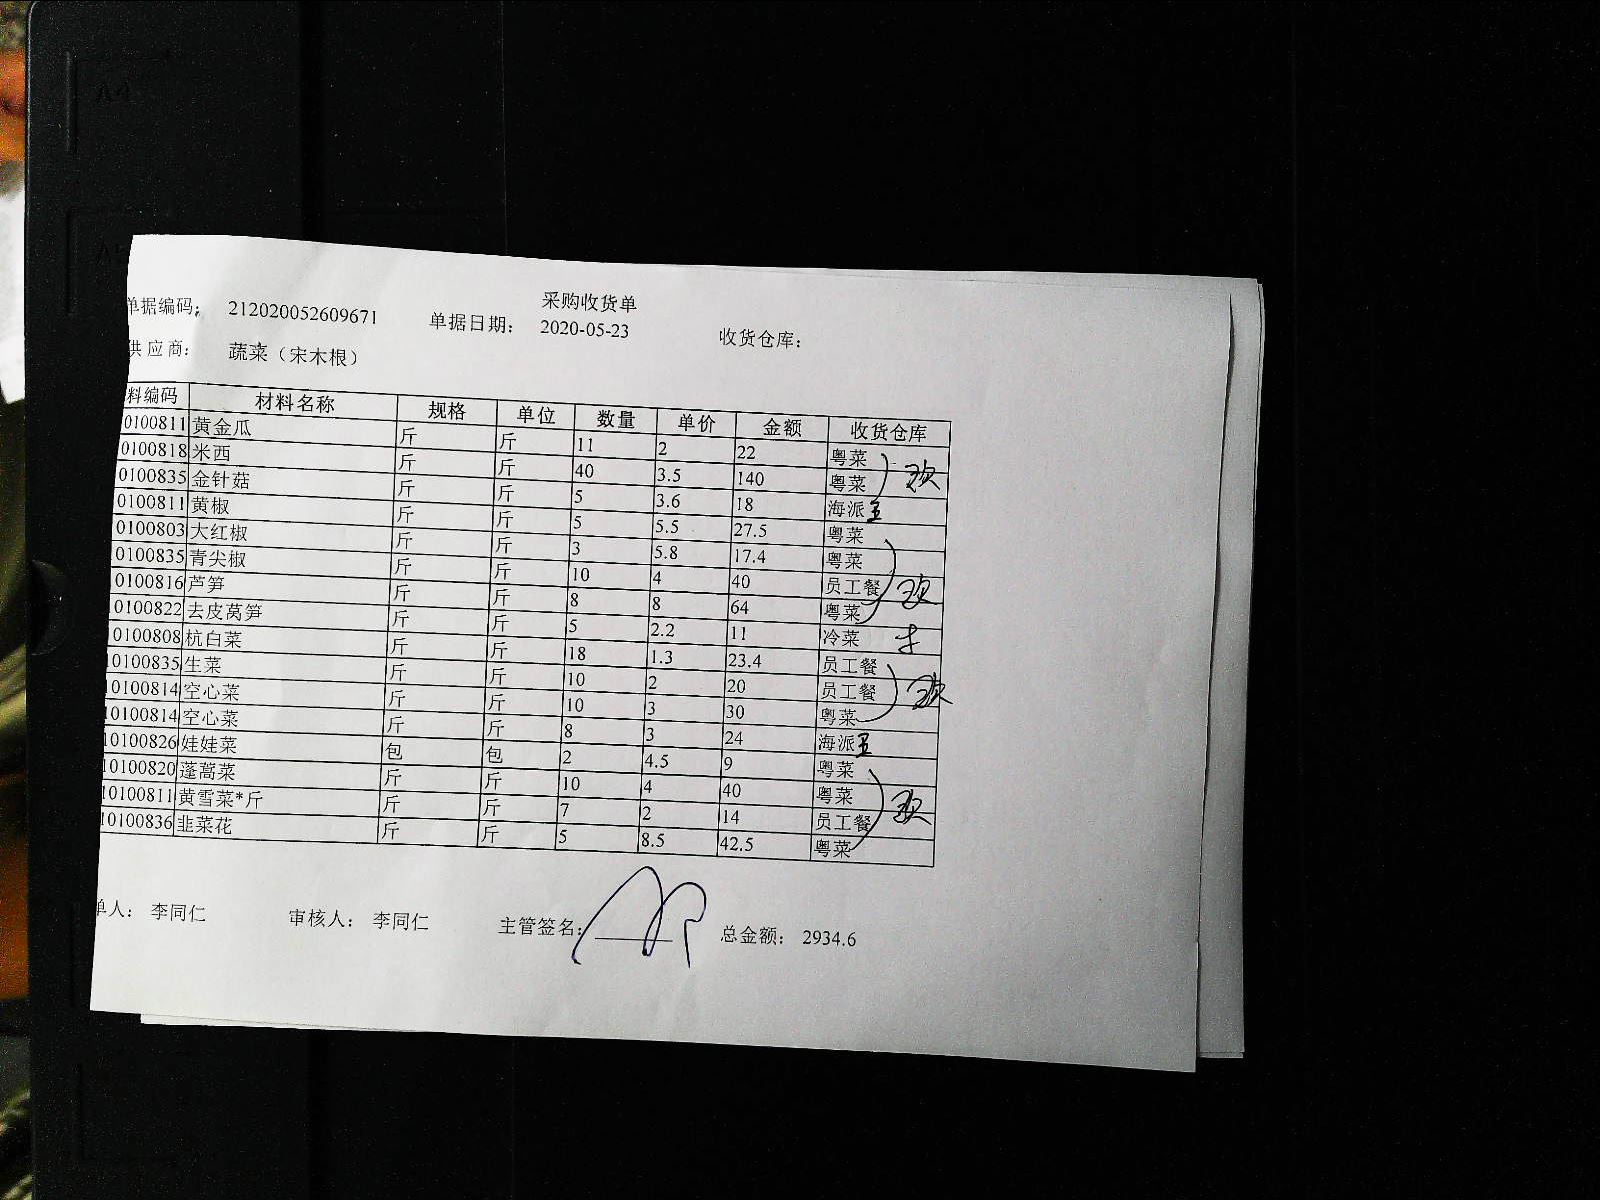 采购收货单
单据编码： 212020052609671 单据日期： 2020-05-23 收货仓库：
供应商： 蔬菜（宋木根）
料编码 材料名称 规格 单位 数量 单价 金额 收货仓库
0100811 黄金瓜 斤 斤 11 2 22 粤菜
0100818 米西 斤 斤 40 3.5 140 粤菜
0100835 金针菇 斤 斤 5 3.6 18 海派
0100811 黄椒 斤 斤 5 5.5 27.5 粤菜
0100803 大红椒 斤 斤 3 5.8 17.4 粤菜
0100835 青尖椒 斤 斤 10 4 40 员工餐
0100816 芦笋 斤 斤 8 8 64 粤菜
0100822 去皮莴笋 斤 斤 5 2.2 11 冷菜
0100808 杭白菜 斤 斤 18 1.3 23.4 员工餐
10100835 生菜 斤 斤 10 2 20 员工餐
10100814 空心菜 斤 斤 10 3 30 粤菜
10100814 空心菜 斤 斤 8 3 24 海派
10100826 娃娃菜 包 包 2 4.5 9 粤菜
10100820 蓬蒿菜 斤 斤 10 4 40 粤菜
10100811 黄雪菜*斤 斤 斤 7 2 14 员工餐
10100836 韭菜花 斤 斤 5 8.5 42.5 粤菜
单人： 李同仁 审核人： 李同仁 主管签名： 总金额： 2934.6